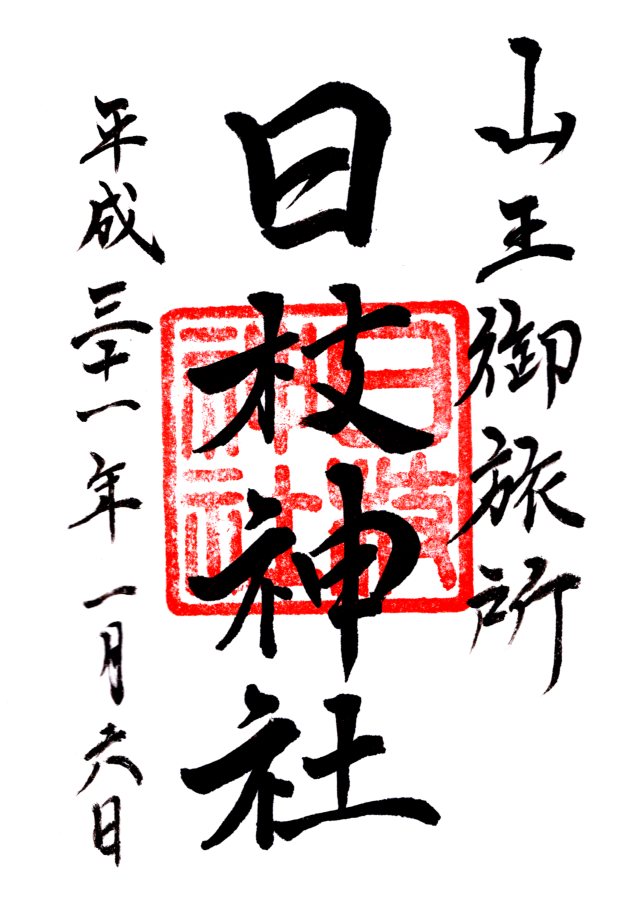 山王御旅所
日枝神社
日枝神社
平成三十一年一月六日